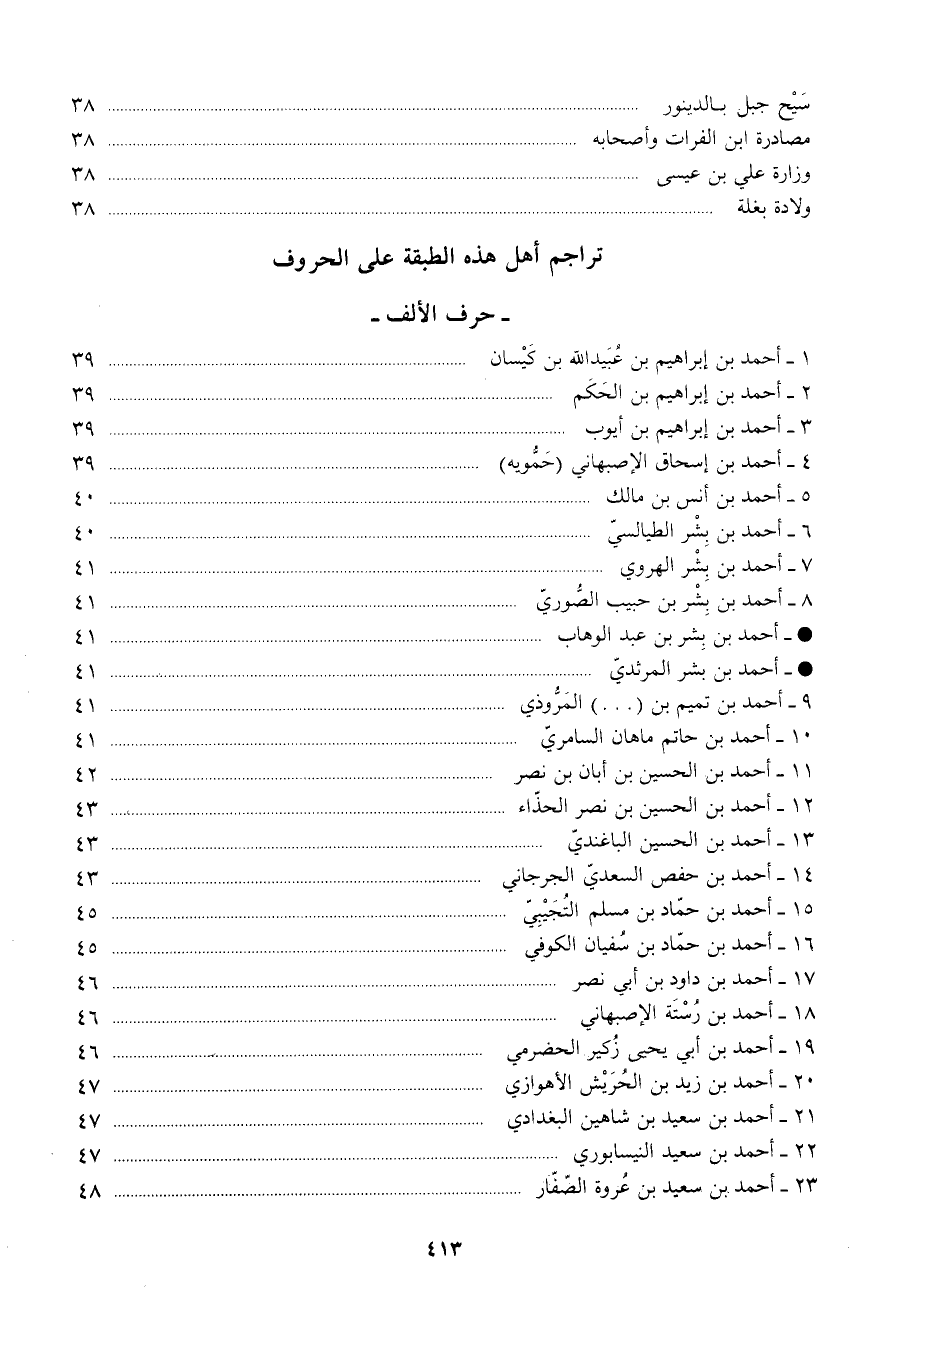 سَيْح جبل بالدينور ........ ٣٨
مصادرة ابن الفرات وأصحابه ........ ٣٨
وزارة علي بن عيسى ........ ٣٨
ولادة بغلة ........ ٣٨
تراجم أهل هذه الطبقة على الحروف
ـ حرف الألف ـ
١ ـ أحمد بن إبراهيم بن عُبَيدالله بن كَيْسان ........ ٣٩
٢ ـ أحمد بن إبراهيم بن الحَكَم ........ ٣٩
٣ ـ أحمد بن إبراهيم بن أيوب ........ ٣٩
٤ ـ أحمد بن إسحاق الإصبهاني (حَمُّويه) ........ ٣٩
٥ ـ أحمد بن أنس بن مالك ........ ٤٠
٦ ـ أحمد بن بِشْر الطيالسيّ ........ ٤٠
٧ ـ أحمد بن بِشْر الهروي ........ ٤١
٨ ـ أحمد بن بِشْر بن حبيب الصُّوريّ ........ ٤١
● ـ أحمد بن بِشر بن عبد الوهاب ........ ٤١
● ـ أحمد بن بشر المرثديّ ........ ٤١
٩ ـ أحمد بن تميم بن (. . .) المَرُّوذي ........ ٤١
١٠ ـ أحمد بن حاتم ماهان السامريّ ........ ٤١
١١ ـ أحمد بن الحسين بن أبان بن نصر ........ ٤٢
١٢ ـ أحمد بن الحسين بن نصر الحذّاء ........ ٤٣
١٣ ـ أحمد بن الحسين الباغنديّ ........ ٤٣
١٤ ـ أحمد بن حفص السعديّ الجرجاني ........ ٤٣
١٥ ـ أحمد بن حمّاد بن مسلم التُجَيْبيّ ........ ٤٥
١٦ ـ أحمد بن حمّاد بن سُفيان الكوفي ........ ٤٥
١٧ ـ أحمد بن داود بن أبي نصر ........ ٤٦
١٨ ـ أحمد بن رُسْتَة الإصبهاني ........ ٤٦
١٩ ـ أحمد بن أبي يحيى زُكير الحضرمي ........ ٤٦
٢٠ ـ أحمد بن زيد بن الحُرَيْش الأهوازي ........ ٤٧
٢١ ـ أحمد بن سعيد بن شاهين البغدادي ........ ٤٧
٢٢ ـ أحمد بن سعيد النيسابوري ........ ٤٧
٢٣ ـ أحمد بن سعيد بن عُروة الصّفّار ........ ٤٨
٤١٣